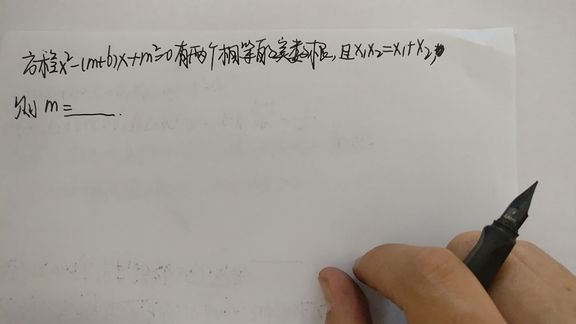 方程x²-(m+6)x+m²=0有两个相等的实数根,且x₁x₂=x₁+x₂,
则 m=____.